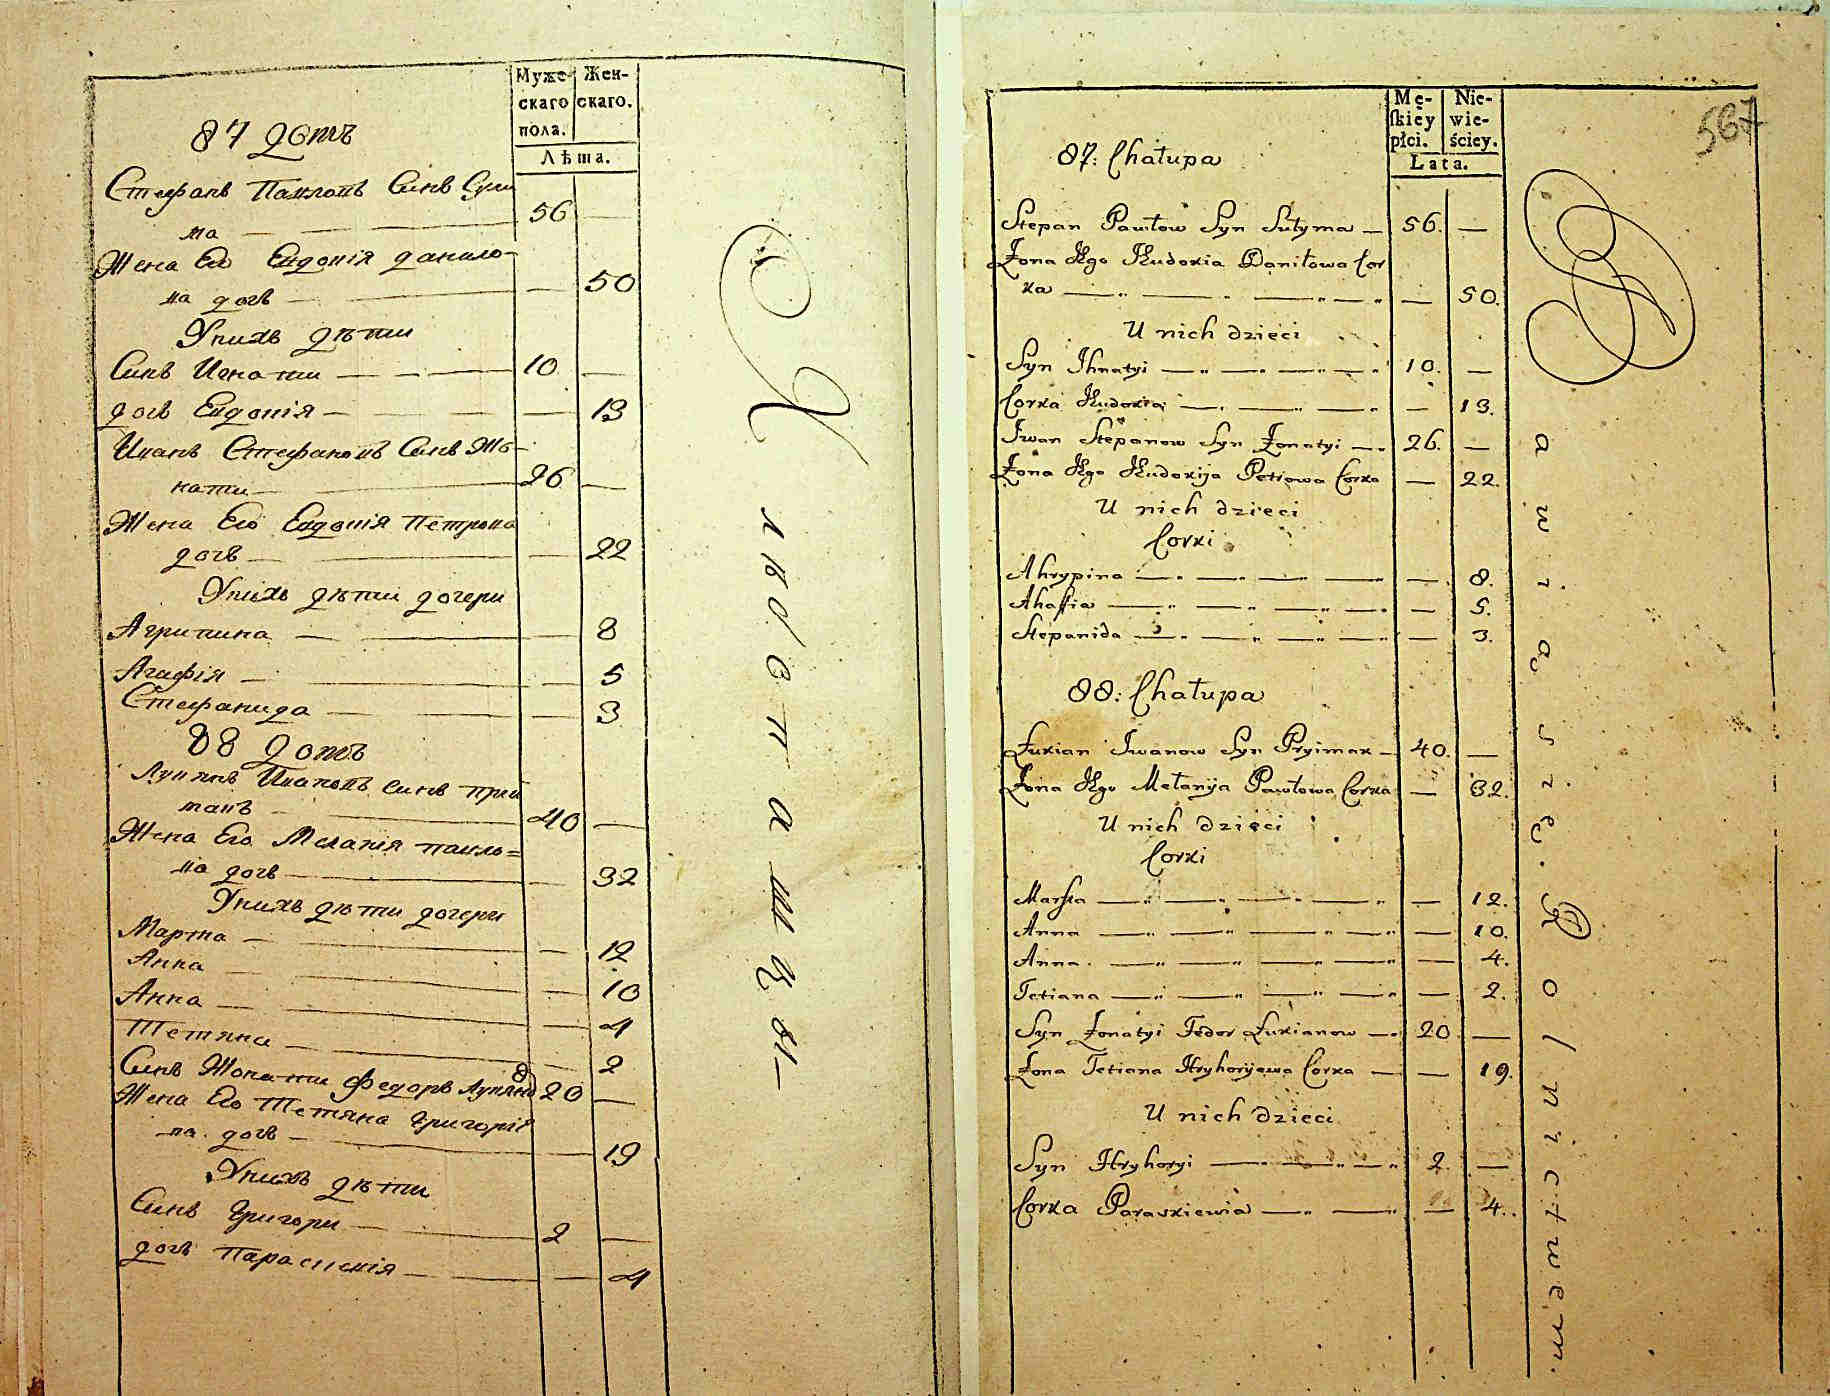 Муже-
скаго
пола.
Жен-
скаго.
Лѣта.
87 домъ
Стефанъ Павловъ Синъ Сули
ма — 56 —
Жена Его Евдокія данило-
ва дочь — 50
Унихъ дѣти
Синъ Игнати — 10 —
дочь Евдокія — 13
Иванъ Стефановъ Синъ Жо-
нати — 26 —
Жена Его Евдокія Петрова
дочь — 22
Унихъ дѣти дочери
Агрипина — 8
Агафія — 5
Стефанида — 3
88 домъ
Лукянъ Ивановъ синъ прий
макъ — 40 —
Жена Его Меланія павло=
ва дочь — 32
Унихъ дѣти дочери
Марта — 12
Анна — 10
Анна — 4
Тетяна — 2
Синъ Жонати Федоръ Лукяно 20 —
Жена Его Тетяна Григоріе
ва дочь — 19
Унихъ дѣти
Синъ Григори — 2 —
дочь Параскекія — 4
Хлѣбопашцы
Mę-
ſkiey
płci.
Nie-
wie-
ściey.
Lata.
567
87: Chałupa
Stepan Pawłow Syn Sułyma — 56. —
Żona Jego Jeudokia Daniłowa Cor
ka — 50.
U nich dzieci
Syn Ihnatyi — 10. —
Corka Jeudokia — 13.
Iwan Stepanow Syn Żonatyi — 26. —
Żona Jego Jeudokija Petrowa Corka — 22.
U nich dzieci
Corki
Ahrypina — 8.
Ahafia — 5.
Stepanida — 3.
88: Chałupa
Łukian Iwanow Syn Pryimak — 40. —
Żona Jego Mełanija Pawłowa Corka — 32.
U nich dzieci
Corki
Marfta — 12.
Anna — 10.
Anna — 4.
Tetiana — 2.
Syn Żonatyi Fedor Łukianow — 20. —
Żona Tetiana Hryhoryjewa Corka — 19.
U nich dzieci
Syn Hryhoryi — 2. —
Corka Paraskiewia — 4.
Bawią się Rolnictwem.